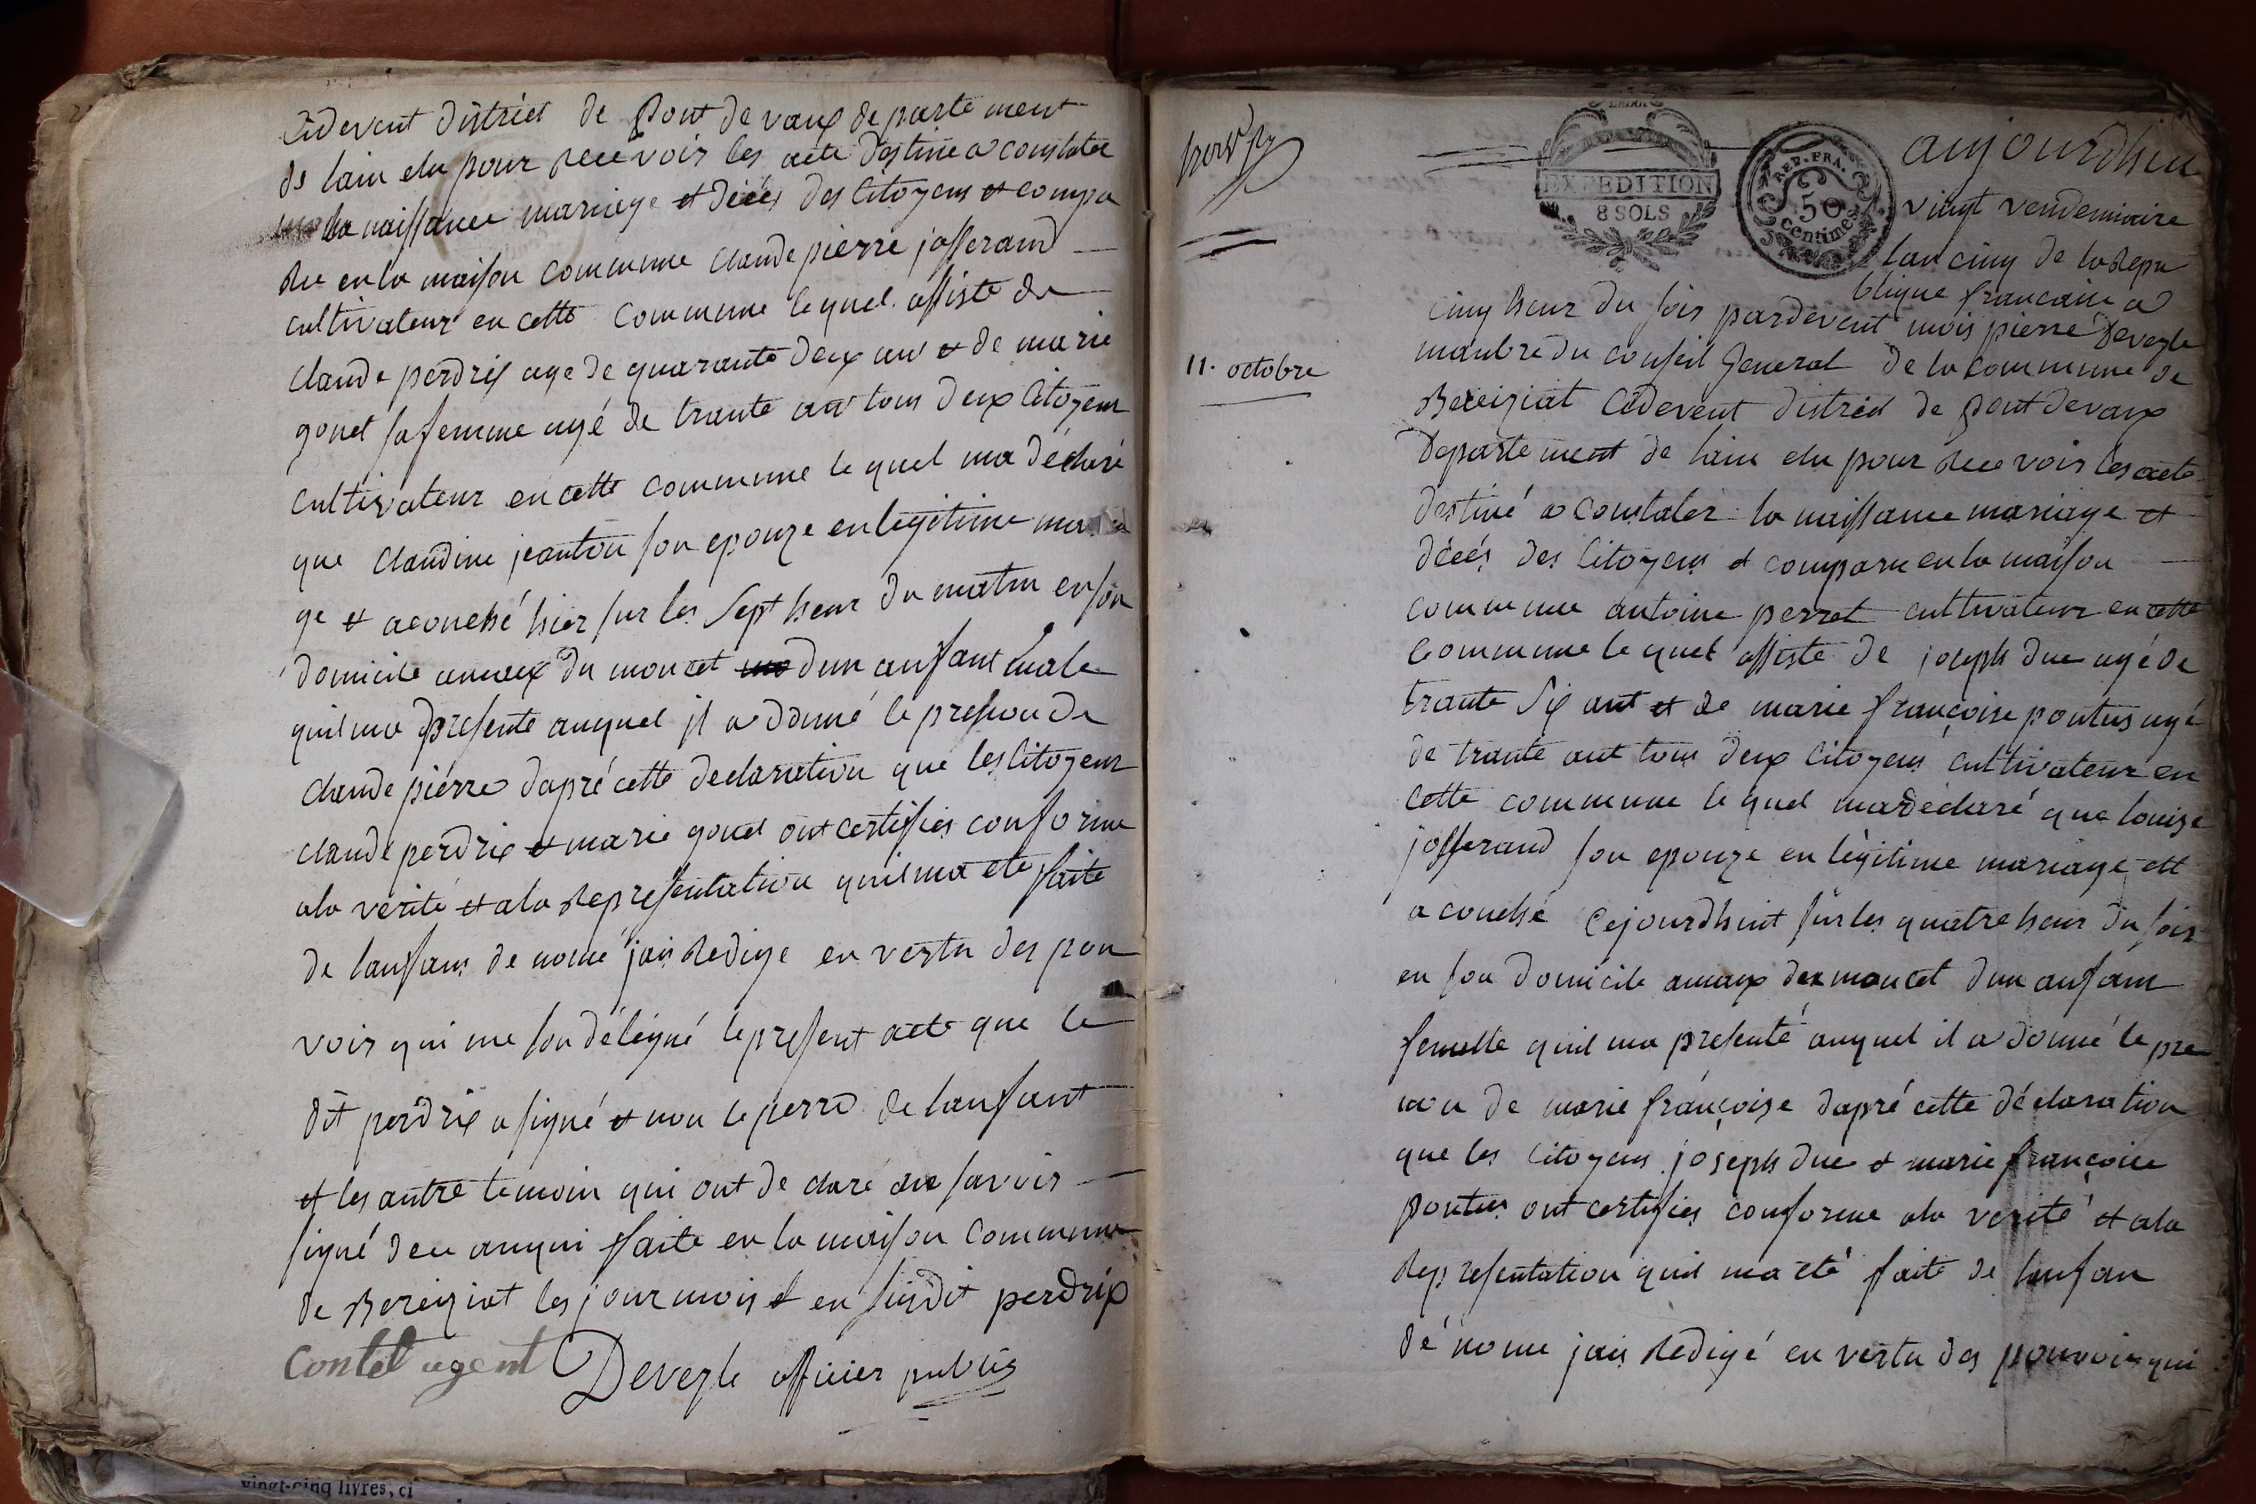 Cidevent district de Pont de vaux departe ment
de lain elu pour recevoir les acte destine a constater
la naissance mariage et décés des Citoyens et compa
ru en la maison commune claude pierre josserand
cultivateur en cette commune lequel assiste de
claude perdrix age de quarante deux an et de marie
gonet sa femme agé de trante an tous deux Citoyens
cultivateur en cette commune le quel ma déclaré
que claudine jeanton son epouze en legitime maria
ge et acouché hier sur les sept heur du matin en son
domicile du moncet dun anfant male
quil ma presente auquel il a donné le presnon de
claude piérre dapré cette declaration que les Citoyens
claude perdrix et marie gonet ont certifies conforme
ala verité et ala representation quil ma ete faite
de lanfans de nomé jais redige en vertu des pou
voir qui me son délégué le present acte que le
dit perdrix a signé et non le perre de lanfant
et les autre temoin qui ont de claré ne savoir
signé de ce anqui faite en la maison commune
de Bereiziat les jour mois et en susdit perdrix
Contet agent Deveyle officier public
EXPEDITION
8 SOLS
REP. FRA.
50
Centimes
aujourdhui
vingt vendemiaire
lan cinq de la repu
blique francaise a
cinq heur du soir pardevent mois pierre Deveyle
manbre du conseil general de la commune de
11. octobre
Bereiziat Cidevent district de pont devaux
Departe ment de lain elu pour recevoir les acte
destiné a constater la naissance mariage et
décés des Citoyens et comparu en la maison
commune antoine perret cultivateur en cette
commune le quel assiste de joseph duc agé de
trante six ant et de marie françoise pontus agé
de trante ant tous deux Citoyens cultivateur en
cette commune le quel ma déclaré que louise
josserand son epouze en légitime mariage ett
a couché cejourdhuit sur les quatre heur du soir
en son domicile amaux des moncet dun anfant
femelle quil ma presenté auquel il a donné le pre
non de marie françoise dapré cette déclaration
que les Citoyens joseph duc et marie françoise
pontus ont certifies conforme ala verité et ala
representation quil ma eté faite de lanfan
dé nome jais redigé en vertu des pouvoir qui
vingt-cinq livres, ci